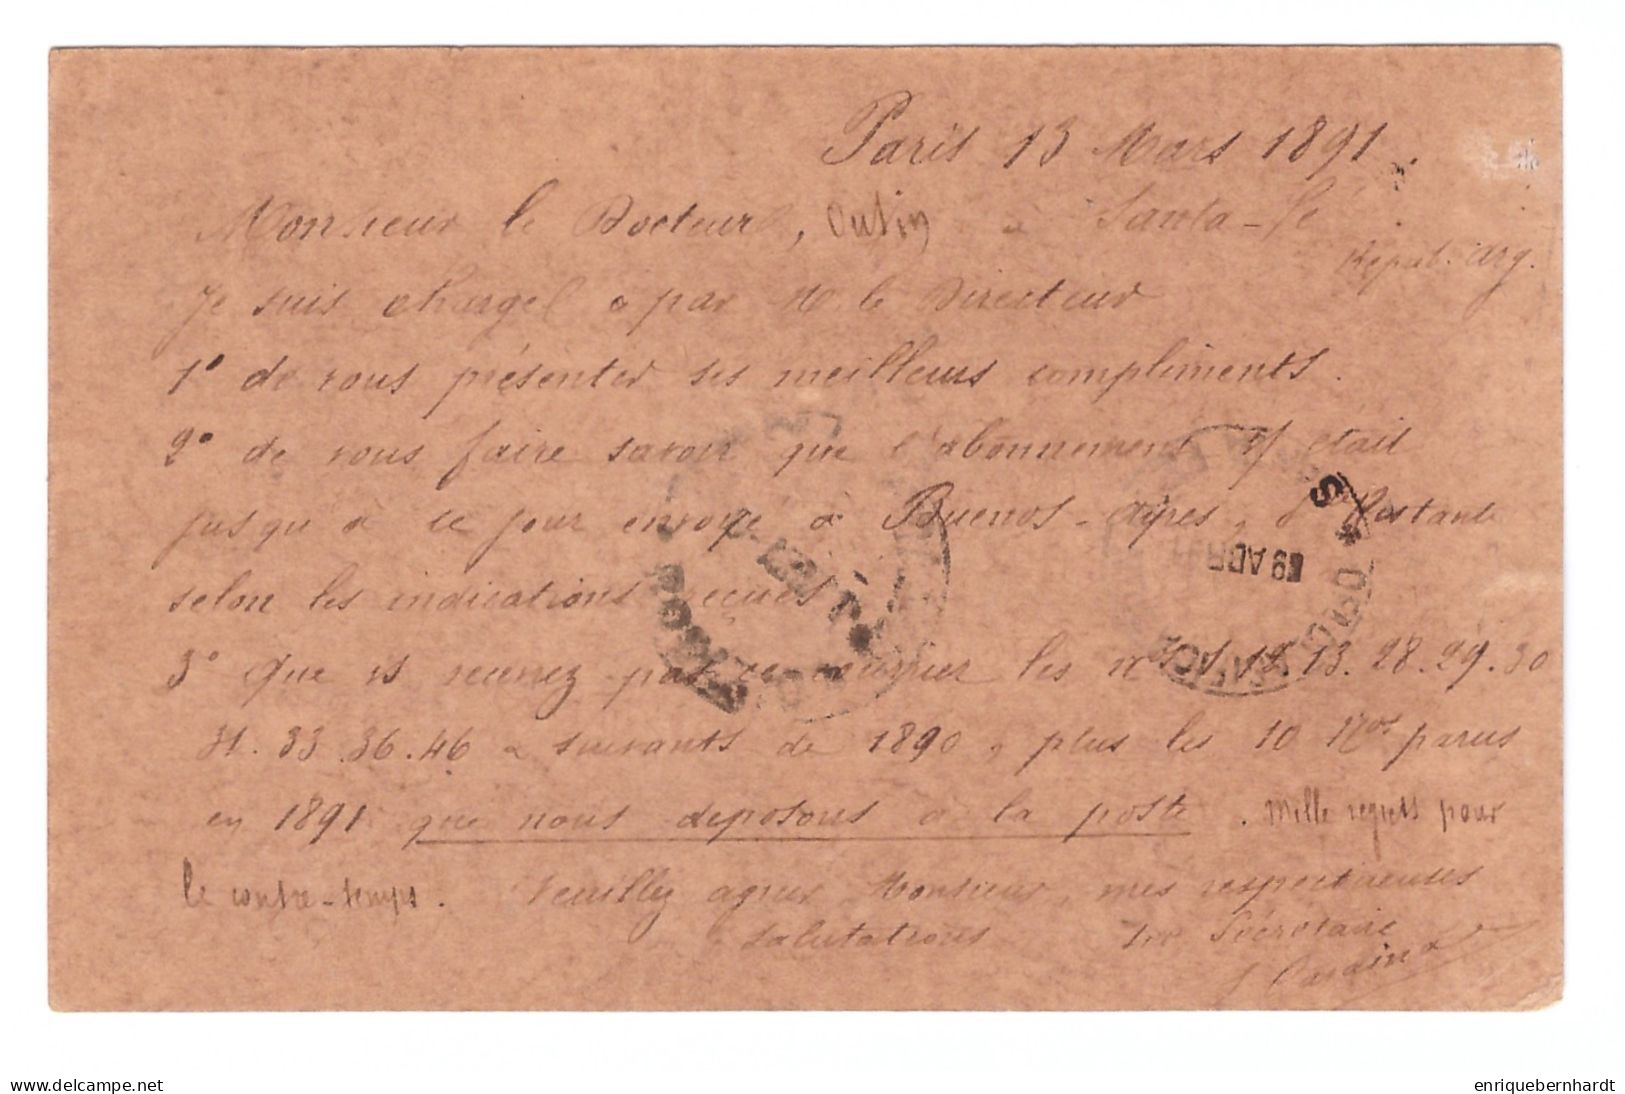 Paris 13 Mars 1891
Monsieur le Docteur, à Santa-Fé
Répub. Arg.
Je suis chargé par M le Directeur
1° de vous présenter ses meilleurs compliments.
2° de vous faire savoir que l'abonnement était
jusqu'à ce jour envoyé à Buenos-Aires, Restante
selon les indications reçues
3° Que vs recevrez par ce courrier les nos 12. 13. 28. 29. 30
31. 33 36. 46 & suivants de 1890, plus les 10 Nos parus
en 1891 que nous déposons à la poste. Mille regrets pour
le contre-temps. Veuillez agréer Monsieur, mes respectueuses
salutations Secrétaire
9 ABR
delcampe.net
enriquebernhardt